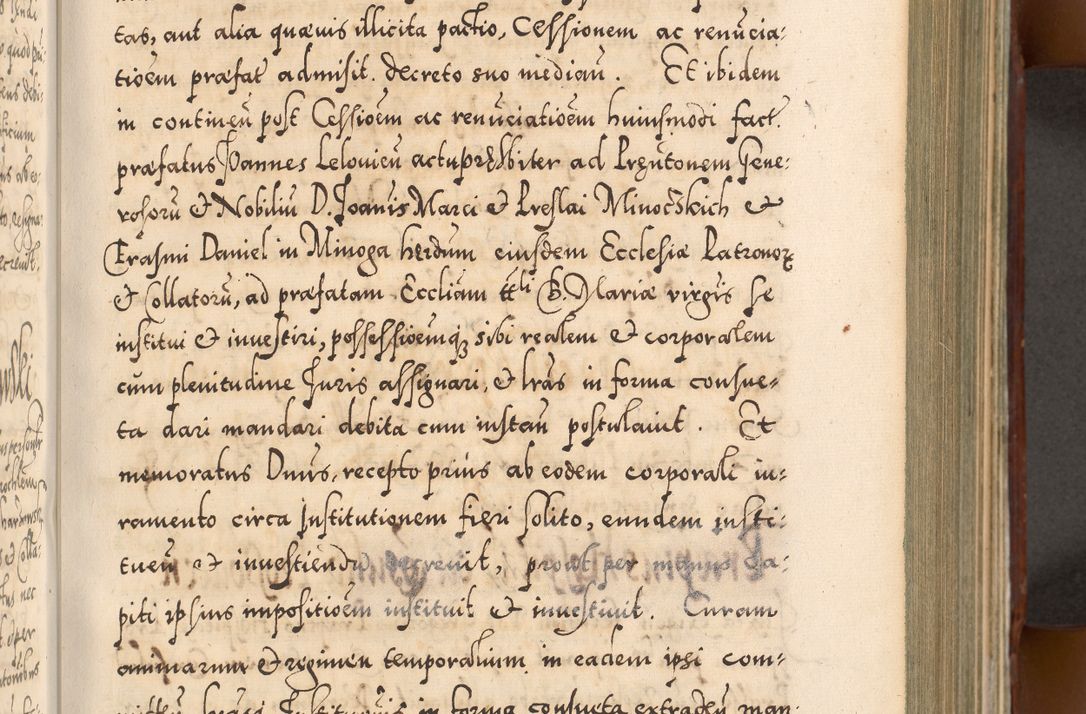 tas, aut alia quævis illicita pactio, Cessionem ac renúcia:
tioem præfat admisit. decreto suo median̄. Et ibidem
in continen̄ post Cessioem ac renúciatioem huiusmodi fact.
præfatus Joannes Lelovien̄ actu præsbiter ad
rosorū & Nobiliū D. Joanis Marci & Preslai Minoczkich &
Erasmi Daniel in Minoga hærdum eiusdem Ecclesiæ Patronoꝝ
& Collatorū, ad præfatam Eccliam ttli B. Mariæ virgīs se
institui & investiri, possessioemq́ sibi realem & corporalem
cum plenitudine Juris assignari, & lrās in forma consue=
ta dari mandari debita cum instan̄ postulavit. Et
memoratus Dnus, recepto prius ab eodem corporali iu=
ramento circa Institutionem fieri solito, eundem insti:
tuen̄ & investiendū decrevit, prout per manus Ca:
piti ipsius impositioem instituit & investivit. Curam
animarum & regimen temporalium in eadem ipsi com=
in forma consueta extraden̄ man=